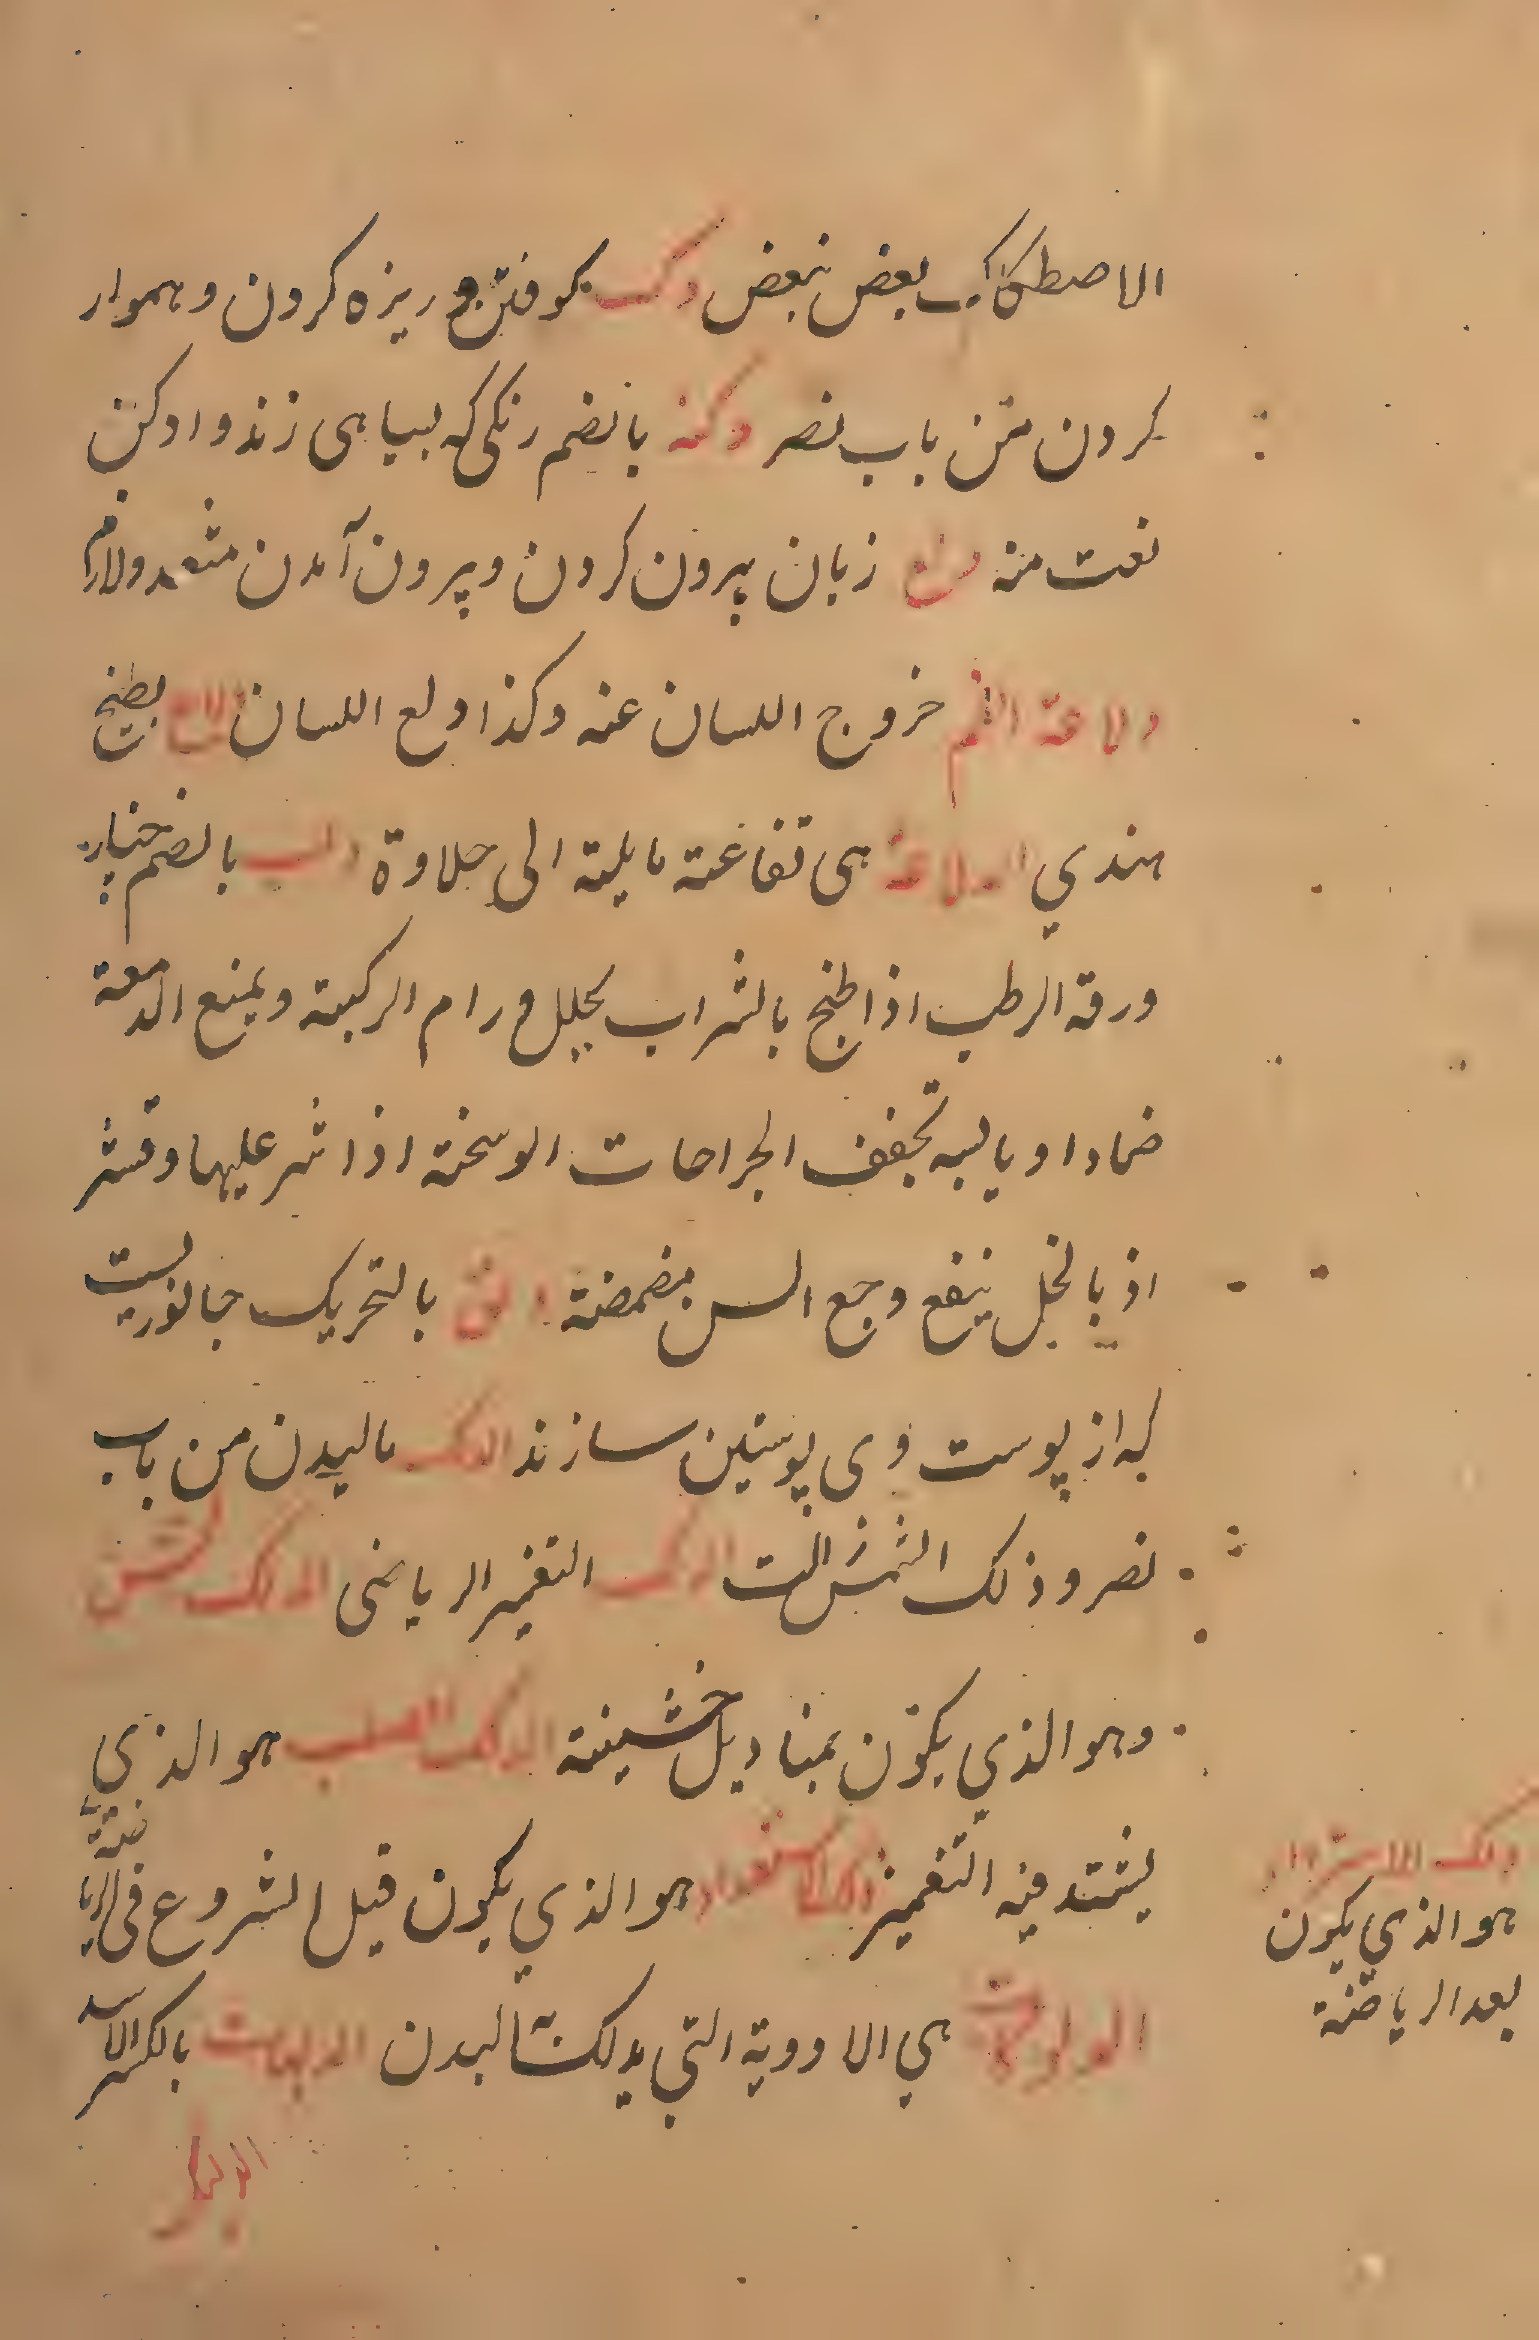 الاصطكاك بعض ببعض دك بكوفتن و ريزه كردن و هموار
كردن من باب نصر دكنة بالضم رنكى كه بسياهى زند و ادكن
نعت منه دلع زبان بيرون كردن و بيرون آمدن متعد و لازم
دلاعة الفم خروج اللسان عنه وكذا دلع اللسان الدلاع بطيخ
هندي الدلاعة هى تفاغة مايلة الى حلاوة دلب بالضم خيار
ورقه الرطب اذا طبخ بالشراب يحلل اورام الركبة ويمنع الدمعة
ضمادا ويابسه تجفف الجراحات الوسخة اذا نثر عليها وقشر
اذ بالخل ينفع وجع السن مضمضة الدلق بالتحريك جانوريست
كه از پوست وى پوستين سازند الدلك ماليدن من باب
نصر وذلك الشمس زالت الدلك التغميز الدلك الخشن
وهو الذي يكون بمناديل خشينة الدلك الصلب هو الذي
يشتد فيه التغميز دلك الاستعداد هو الذي يكون قبل الشروع فى الرياضة
هي الادوية التي يدلك بها البدن الدلهاث بالكسر الاسد
دلك الاسترداد
هو الذي يكون
بعد الرياضة